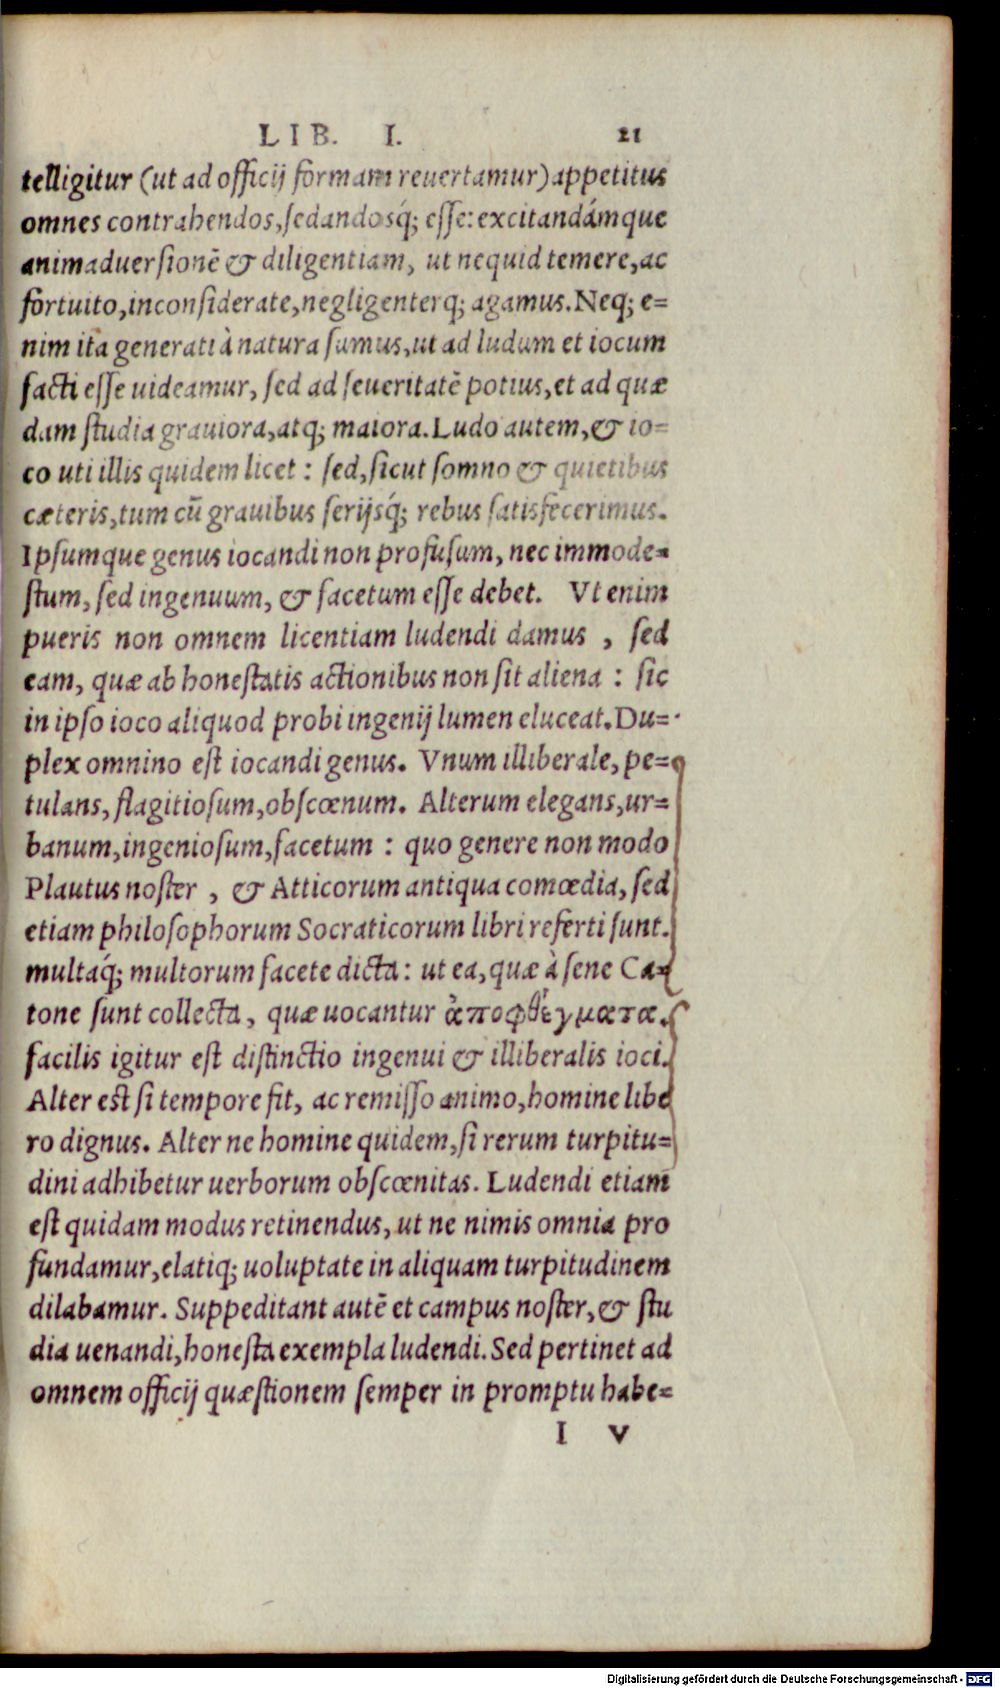 LIB. I. 21
telligitur (ut ad officij formam reuertamur) appetitus
omnes contrahendos, sedandosq́;  esse: excitandámque
animaduersionē & diligentiam, ut ne quid temere, ac
fortuito, inconsiderate, negligenterq; agamus. Neq; e=
nim ita generati à natura sumus, ut ad ludum et iocum
facti esse uideamur, sed ad seueritatē potius, et ad quæ
dam studia grauiora, atq; maiora. Ludo autem, & io=
co uti illis quidem licet : sed, sicut somno & quietibus
cæteris, tum cū grauibus serijsq́; rebus satisfecerimus.
Ipsumque genus iocandi non profusum, nec immode=
stum, sed ingenuum, & facetum esse debet. Vt enim
pueris non omnem licentiam ludendi damus , sed
eam, quæ ab honestatis actionibus non sit aliena : sic
in ipso ioco aliquod probi ingenij lumen eluceat. Du=
plex omnino est iocandi genus. Vnum illiberale, pe=
tulans, flagitiosum, obscœnum. Alterum elegans, ur=
banum, ingeniosum, facetum : quo genere non modo
Plautus noster , & Atticorum antiqua comœdia, sed
etiam philosophorum Socraticorum libri referti sunt.
multaq́; multorum facete dicta : ut ea, quæ à sene Ca=
tone sunt collecta, quæ uocantur ἀποφθέγματα.
facilis igitur est distinctio ingenui & illiberalis ioci.
Alter est si tempore fit, ac remisso animo, homine libe
ro dignus. Alter ne homine quidem, si rerum turpitu=
dini adhibetur uerborum obscœnitas. Ludendi etiam
est quidam modus retinendus, ut ne nimis omnia pro
fundamur, elatiq; uoluptate in aliquam turpitudinem
dilabamur. Suppeditant autē et campus noster, & stu
dia uenandi, honesta exempla ludendi. Sed pertinet ad
omnem officij quæstionem semper in promptu habe=
I V
Digitalisierung gefördert durch die Deutsche Forschungsgemeinschaft - DFG